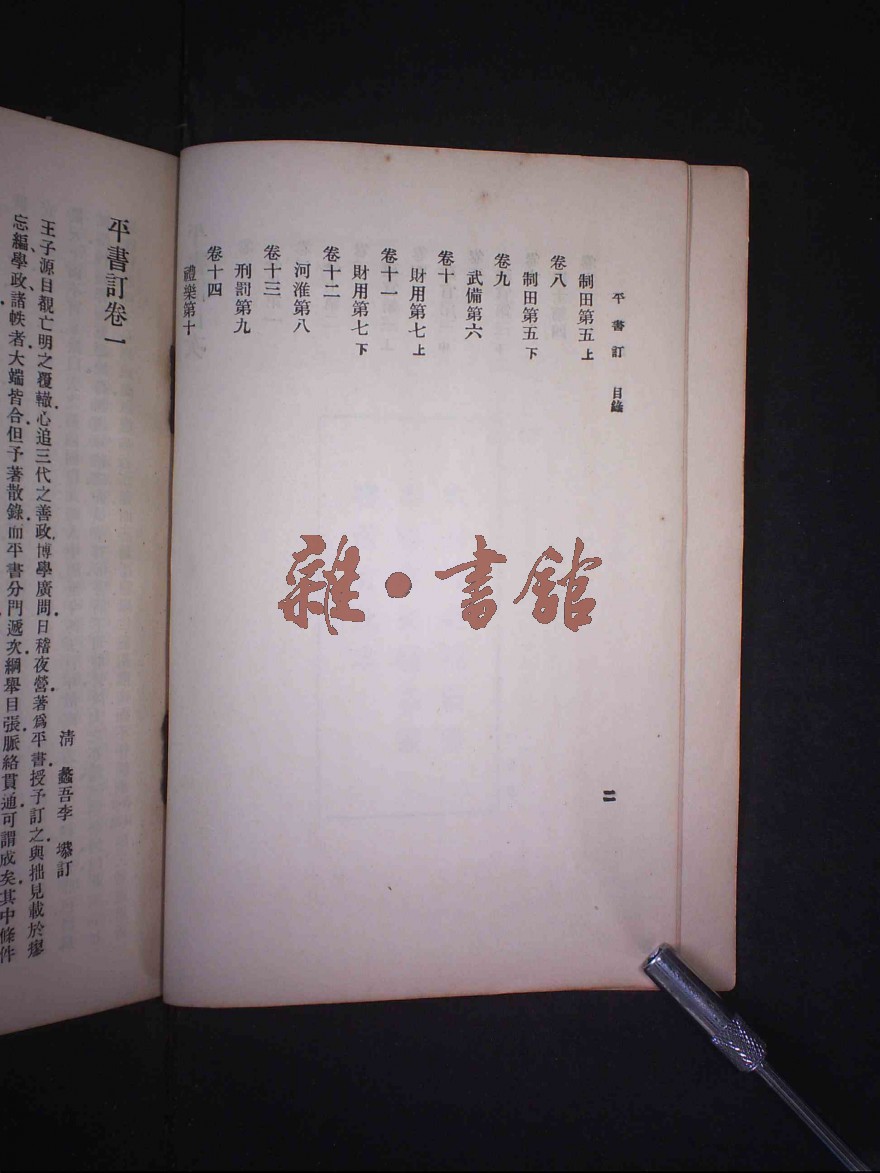 平書訂 目錄
二
制田第五上
卷八
制田第五下
卷九
武備第六
卷十
財用第七上
卷十一
財用第七下
卷十二
河淮第八
卷十三
刑罰第九
卷十四
禮樂第十
雜·書館
平書訂卷一
清 蠡吾李 塨訂
王子源目覩亡明之覆轍心追三代之善政博學廣問日稽夜營著爲平書授予訂之與拙見載於瘳
忘編學政諸帙者大端皆合但予著散錄而平書分門遞次綱舉目張脈絡貫通可謂成矣其中條件